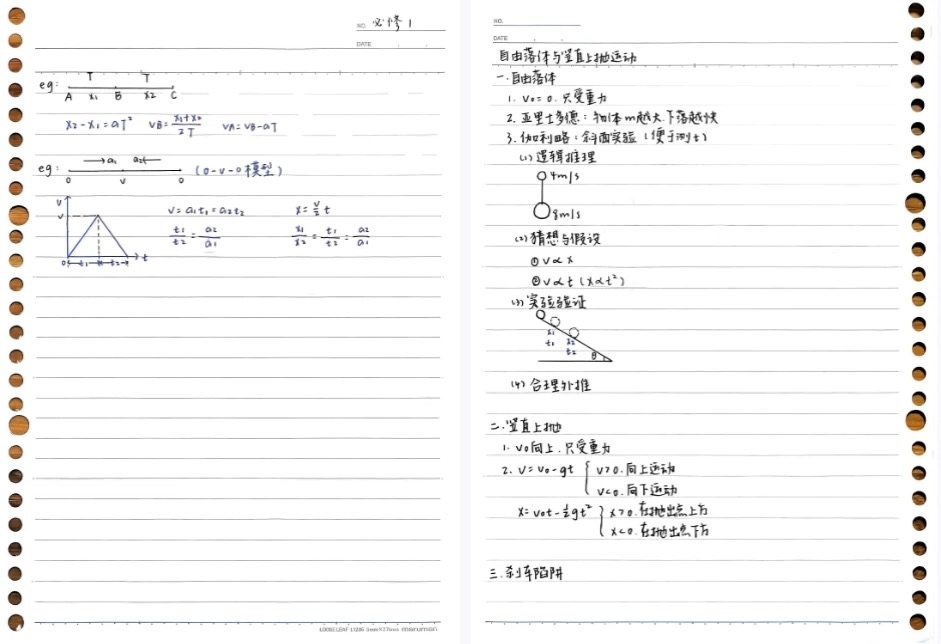 NO. 必修1
DATE
eg: T T
A x₁ B x₂ C
x₂-x₁=aT² vB=(x₁+x₂)/2T vA=vB-aT
eg: →a₁ a₂←
0 v 0 (0-v-0模型)
v
v
0 t₁ t₂ t
v=a₁t₁=a₂t₂ x=v/2 t
t₁/t₂=a₂/a₁ x₁/x₂=t₁/t₂=a₂/a₁
LOOSE LEAF maruman
NO.
DATE
自由落体与竖直上抛运动
一.自由落体
1. v₀=0.只受重力
2. 亚里士多德:物体m越大.下落越快
3. 伽利略:斜面实验(便于测t)
(1)逻辑推理
4m/s
8m/s
(2)猜想与假设
①v∝x
②v∝t(x∝t²)
(3)实验验证
x₁
t₁ x₂
t₂ θ
(4)合理外推
二.竖直上抛
1. v₀向上.只受重力
2. v=v₀-gt { v>0.向上运动
v<0.向下运动
x=v₀t-½gt² } x>0.在抛出点上方
x<0.在抛出点下方
三.刹车陷阱